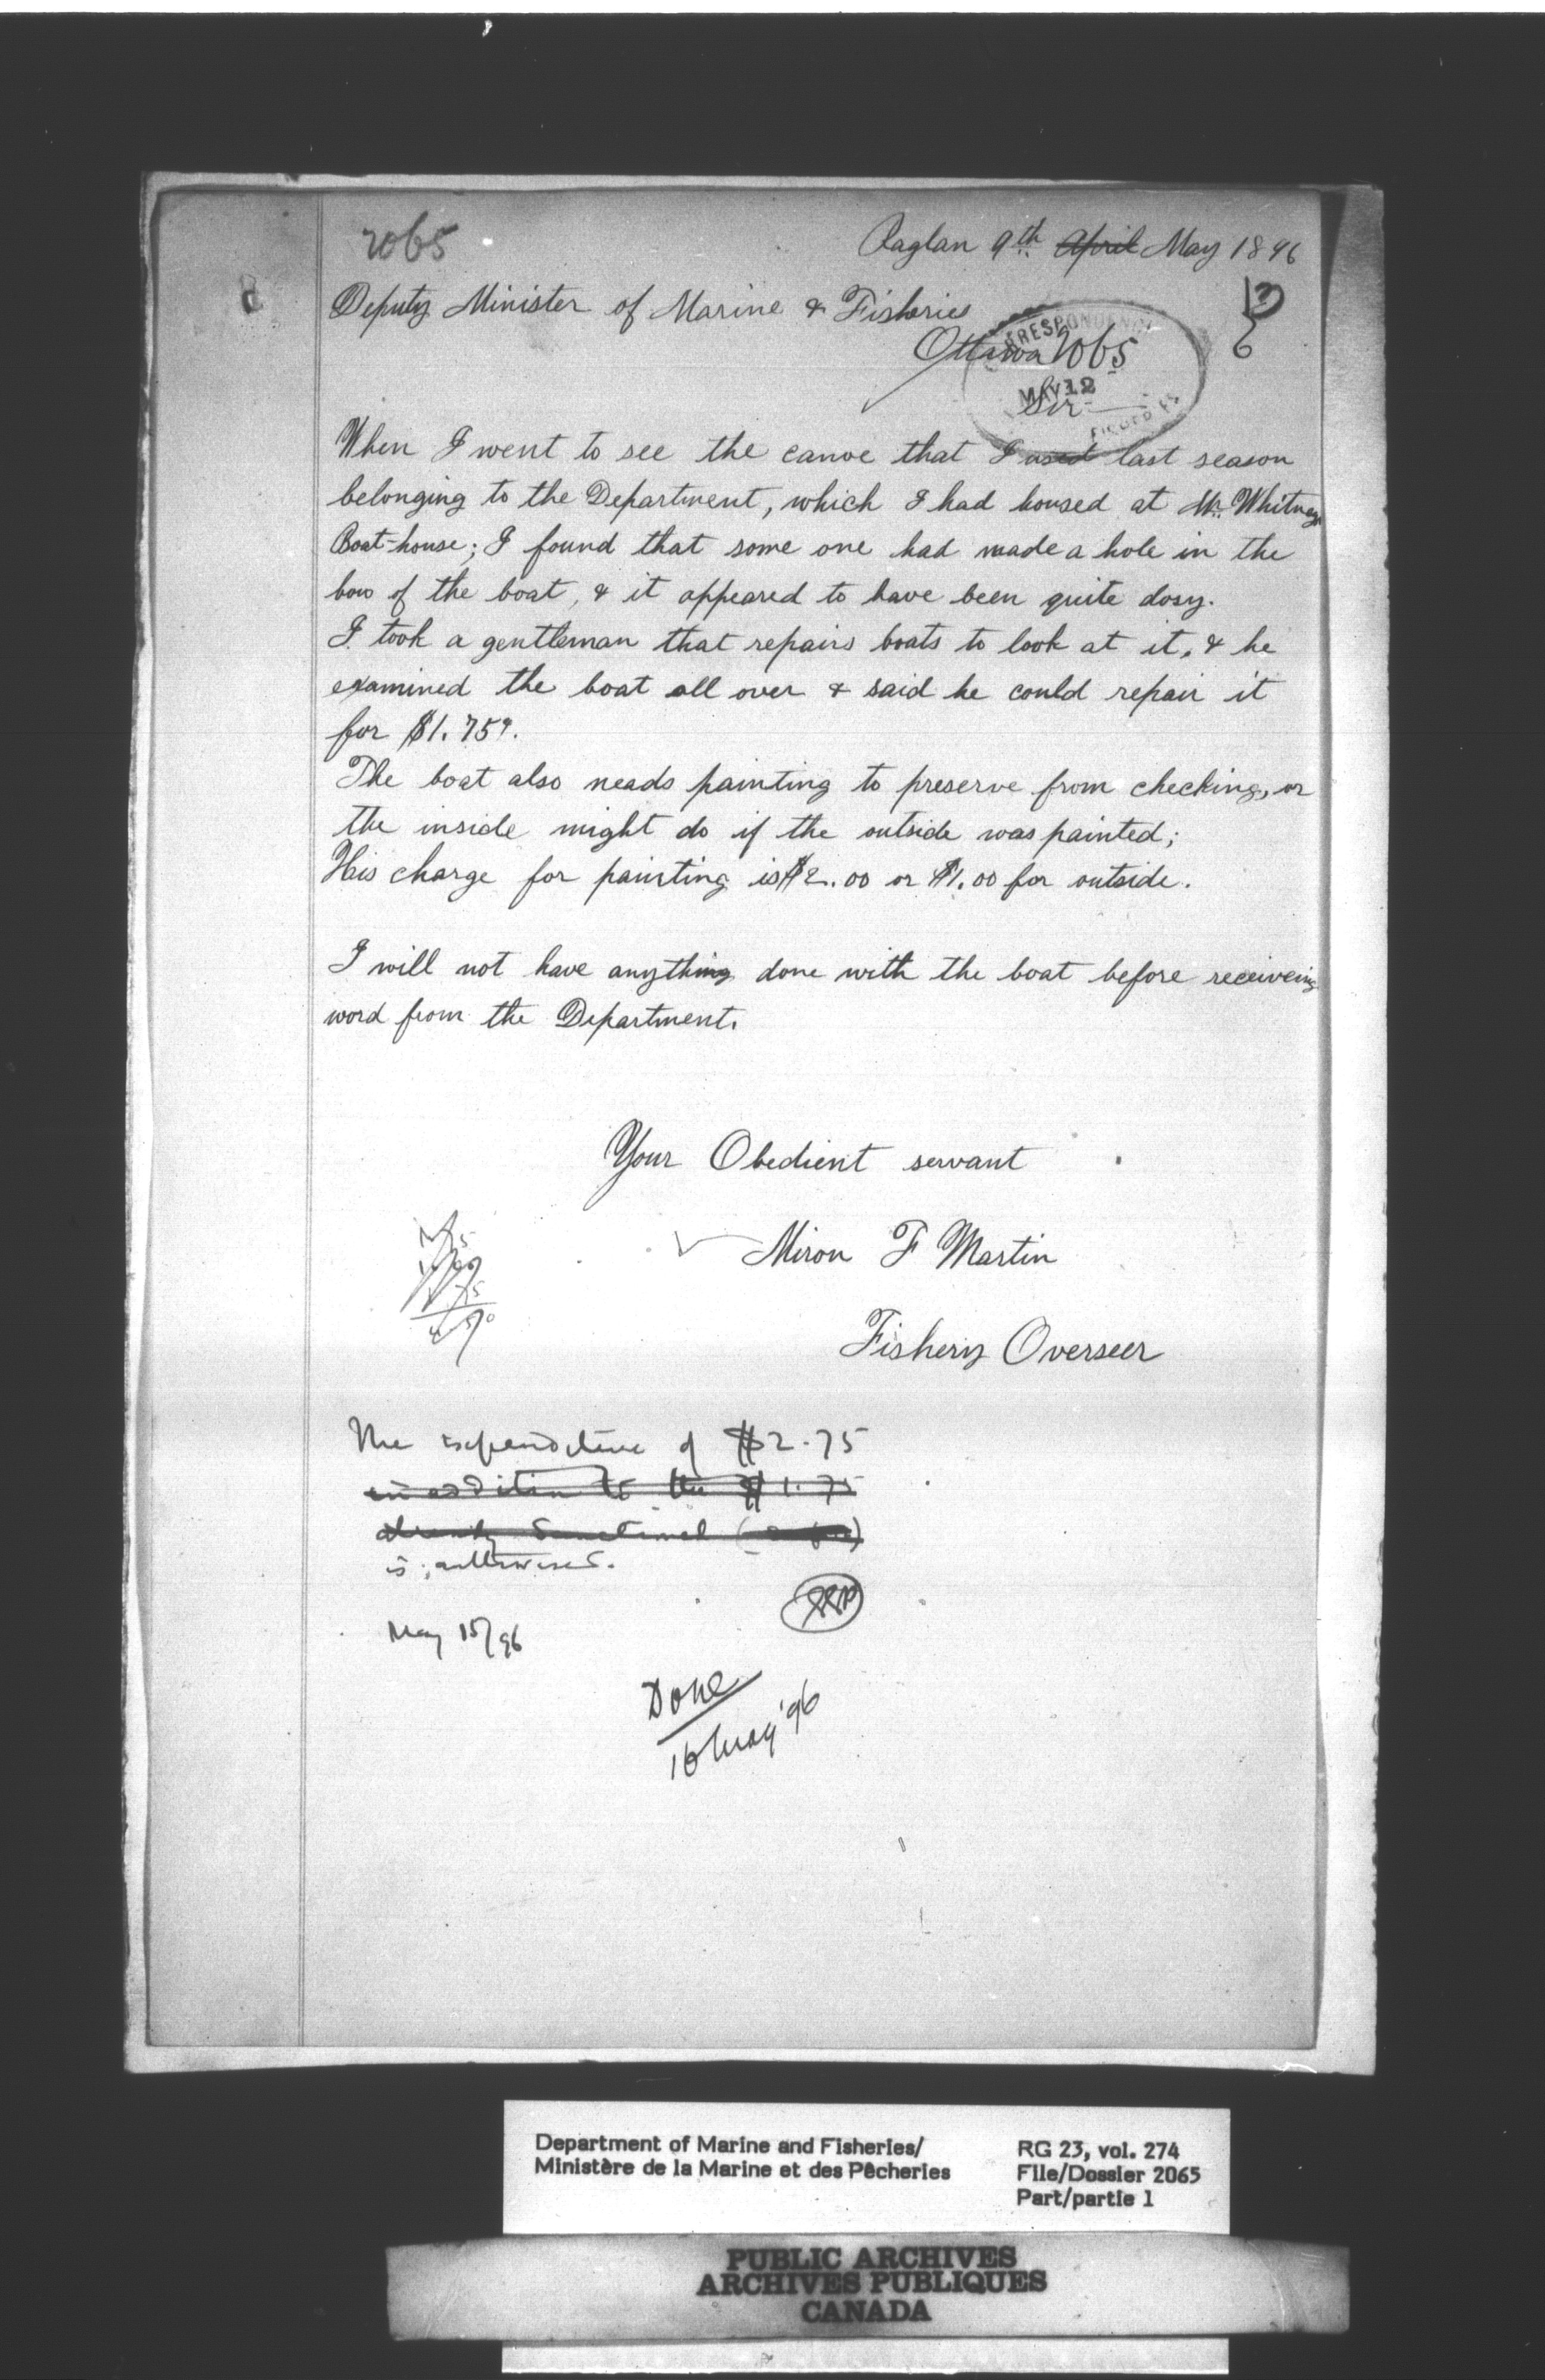 2065
Raglan 9th April May 1896
Deputy Minister of Marine & Fisheries
Ottawa 2065
CORRESPONDENCE
MAY 12
Sir
When I went to see the canoe that I used last season
belonging to the Department, which I had housed at Mr. Whitneys
Boat-house; I found that some one had made a hole in the
bow of the boat, & it appeared to have been quite dosy.
I took a gentleman that repairs boats to look at it, & he
examined the boat all over & said he could repair it
for $1.75¢.
The boat also neads painting to preserve from checking, or
the inside might do if the outside was painted;
His charge for painting is $2.00 or $1.00 for outside.
I will not have anything done with the boat before receiveing
word from the Department.
Your Obedient servant
Miron F Martin
Fishery Overseer
The expenditure of $2.75
in addition to the $1.75
already sanctioned
is authorised.
May 15/96
Done
16 May '96
Department of Marine and Fisheries/
Ministère de la Marine et des Pêcheries
RG 23, vol. 274
File/Dossier 2065
Part/partie 1
PUBLIC ARCHIVES
ARCHIVES PUBLIQUES
CANADA